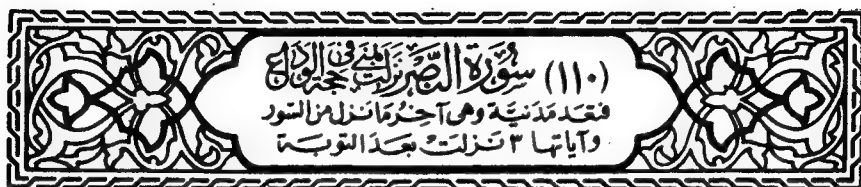 (١١٠) سُورَةُ النَّصْر نَزَلتْ بمنى فى حَجَّة الوَداع
فتعَد مَدنيَّة وهى آخِرُ مَا نَزل مِنَ السُّوَر
وَآياتهَا ٣ نَزلَتْ بَعدَ التوبَة